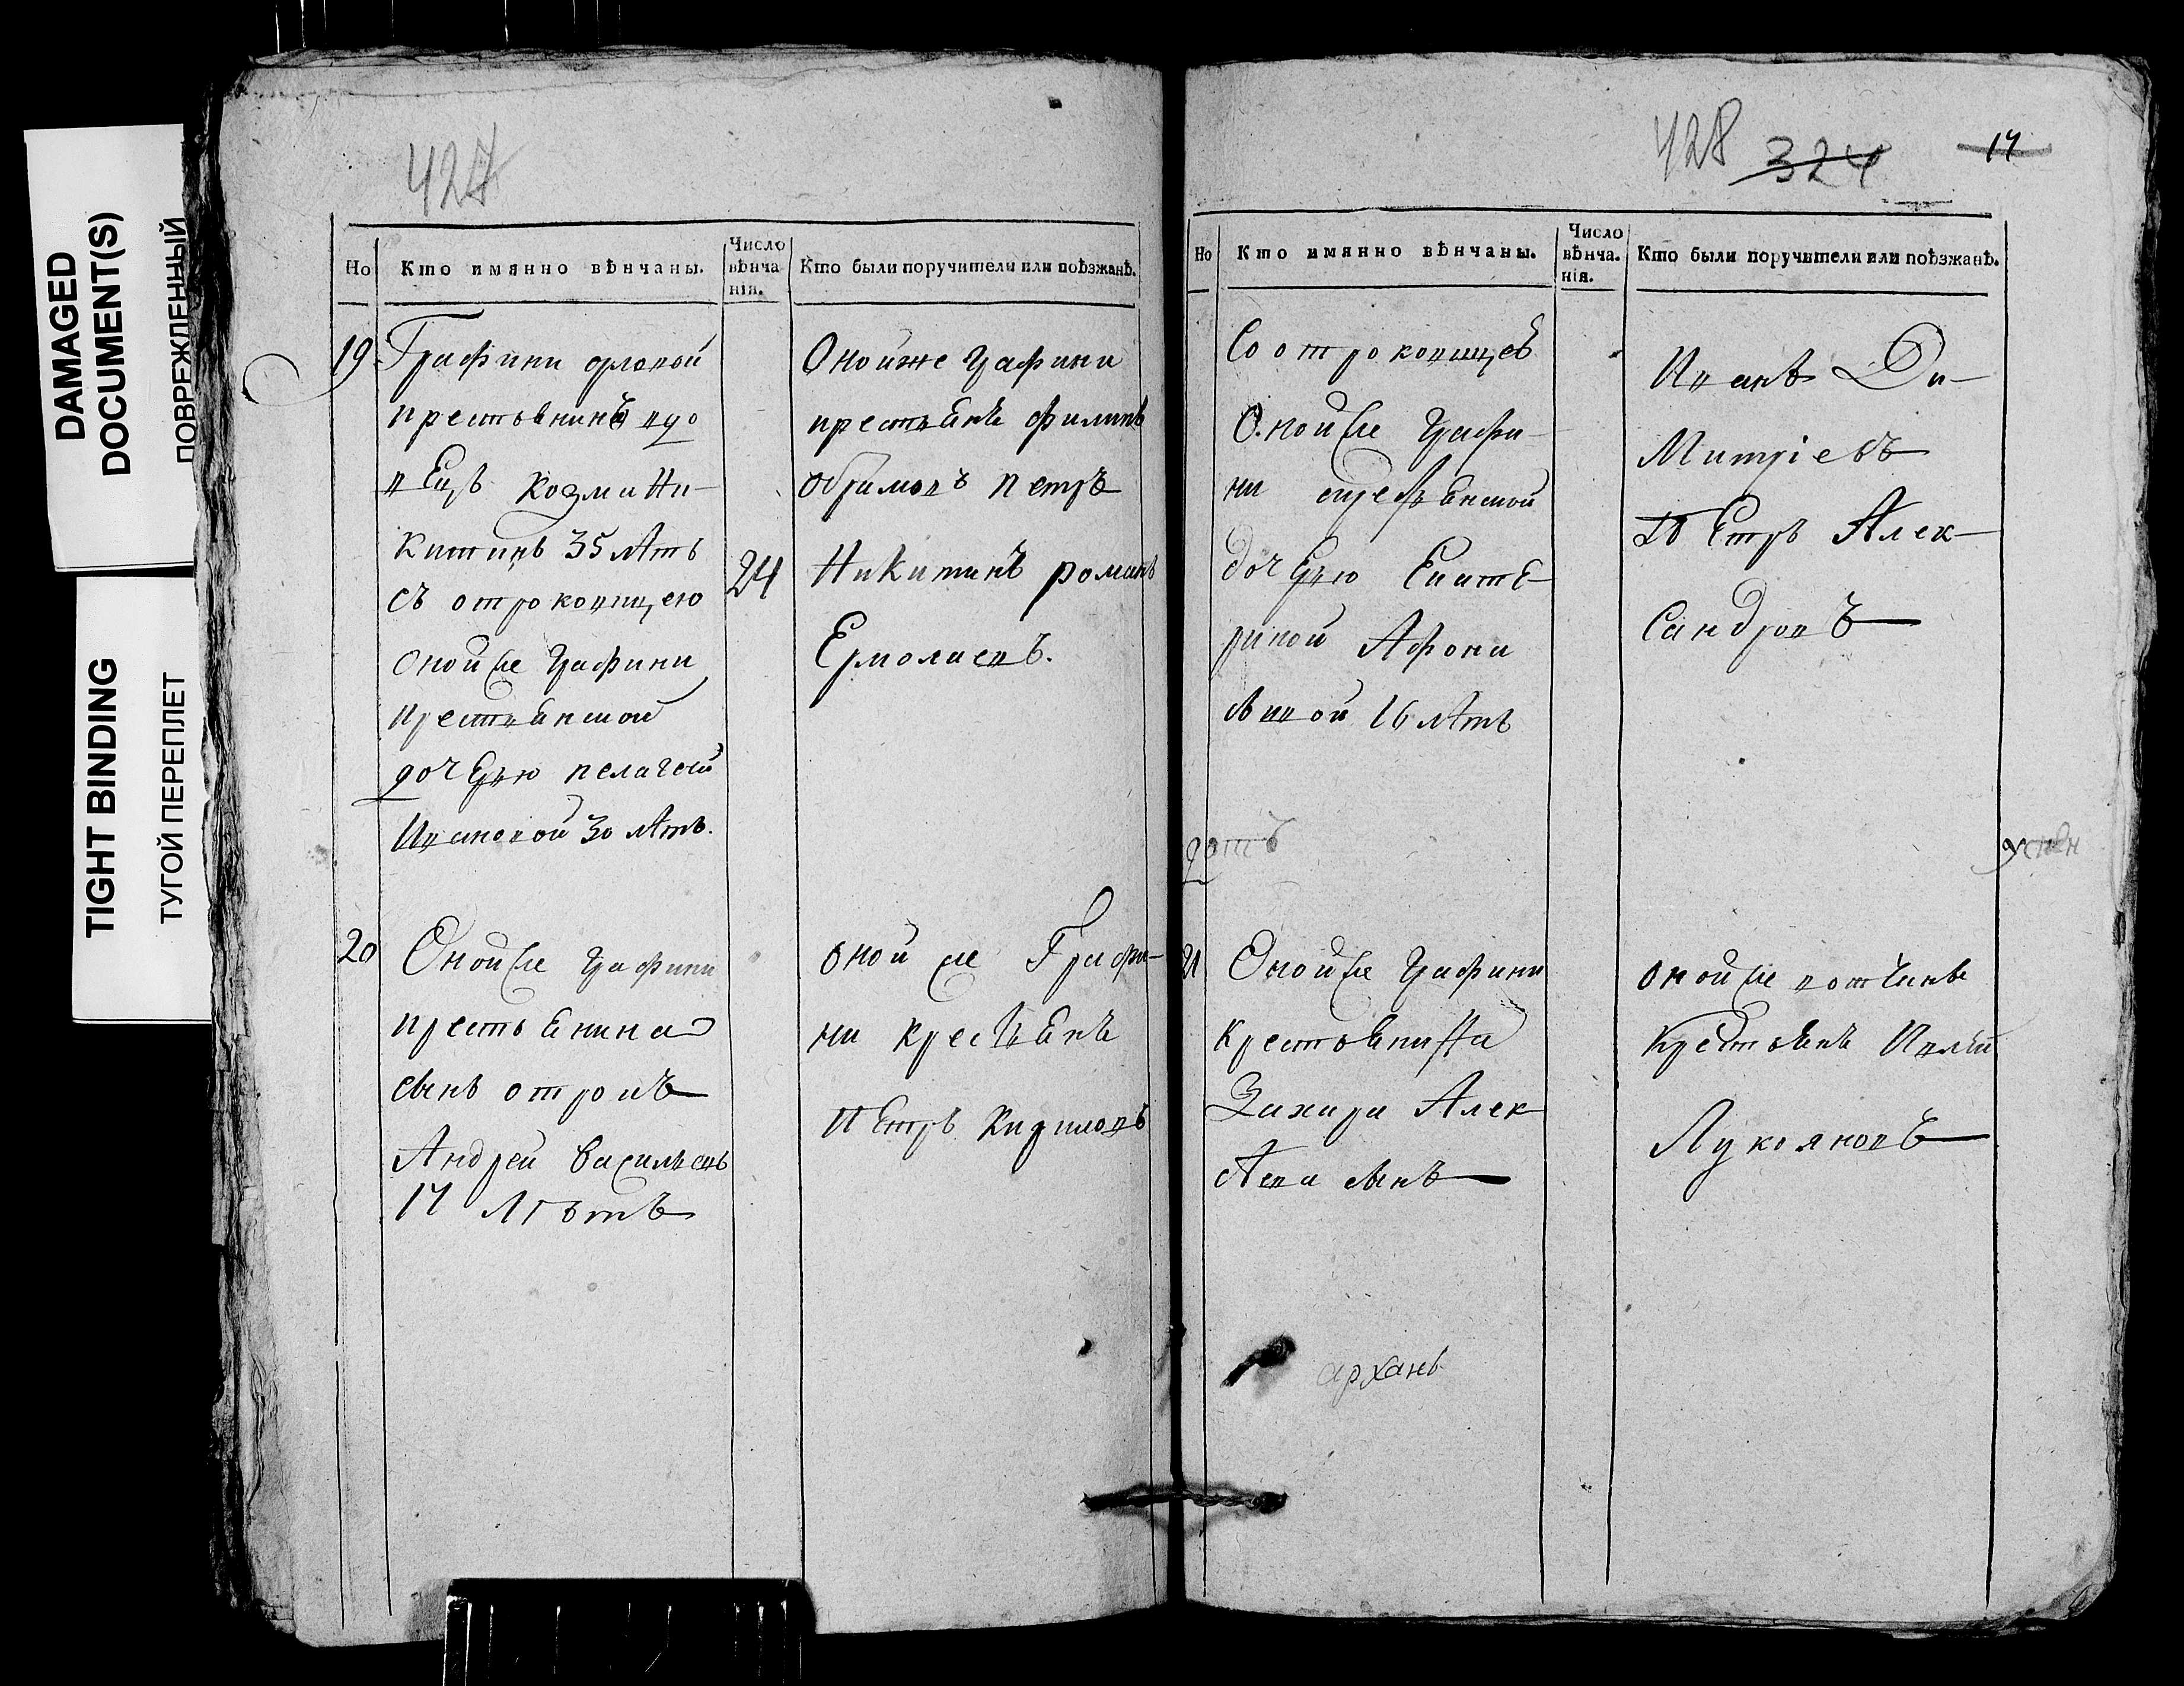 DAMAGED
DOCUMENT(S)
ПОВРЕЖДЕННЫЙ
TIGHT BINDING
ТУГОЙ ПЕРЕПЛЕТ
427
Но
Кто имянно вѣнчаны.
Число
вѣнча
нія.
Кто были поручители или поѣзжанѣ.
19
Графини орловой
крестьянинъ вдо
вецъ Козма Ни-
китинъ 35 лѣтъ
съ отроковицею
Оной же Графини
крестьянской
дочерью пелагеей
Ивановой 30 лѣтъ.
24
Оной же Графини
крестьяне филипъ
петръ
Никитинъ романъ
Ермолаевъ.
20
Оной же Графини
крестьянина
сынъ отрокъ
Андрей Васильевъ
17 лѣтъ
оной же Графи-
ни крестьянъ
Петръ Кириловъ
428 324 17
Но
Кто имянно вѣнчаны.
Число
вѣнча.
нія.
Кто были поручители или поѣзжанѣ.
Со отроковицей
Оной же Графи-
ни крестьянской
дочерью Екате-
риной Афона
сьивой 16 лѣтъ
Иванъ Ди-
митріевъ
Петръ Алек-
сандровъ
21
Оной же Графини
Крестьянина
Захара Алек
сѣева сынъ
оной же вотчины
Крестьянъ
Лукояновъ
архан